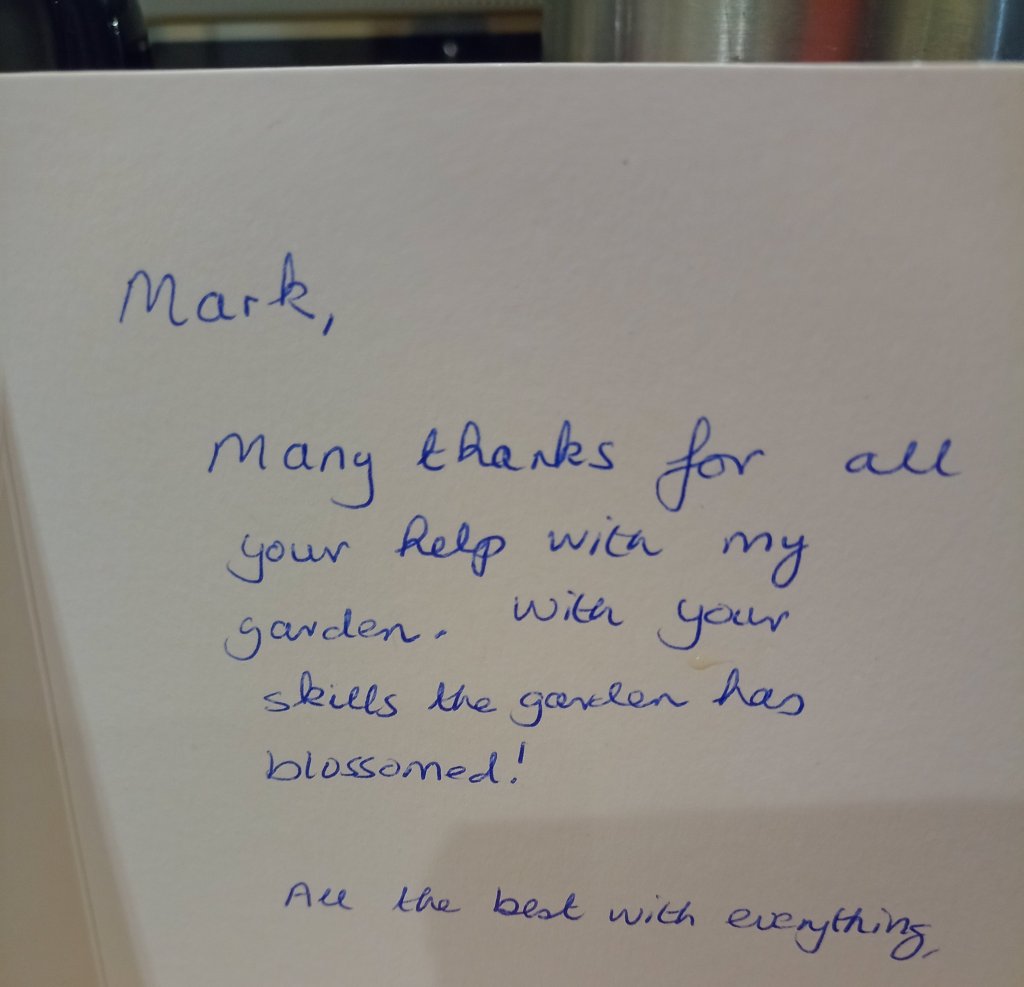 Mark,
Many thanks for all
your help with my
garden. With your
skills the garden has
blossomed!
All the best with everything,